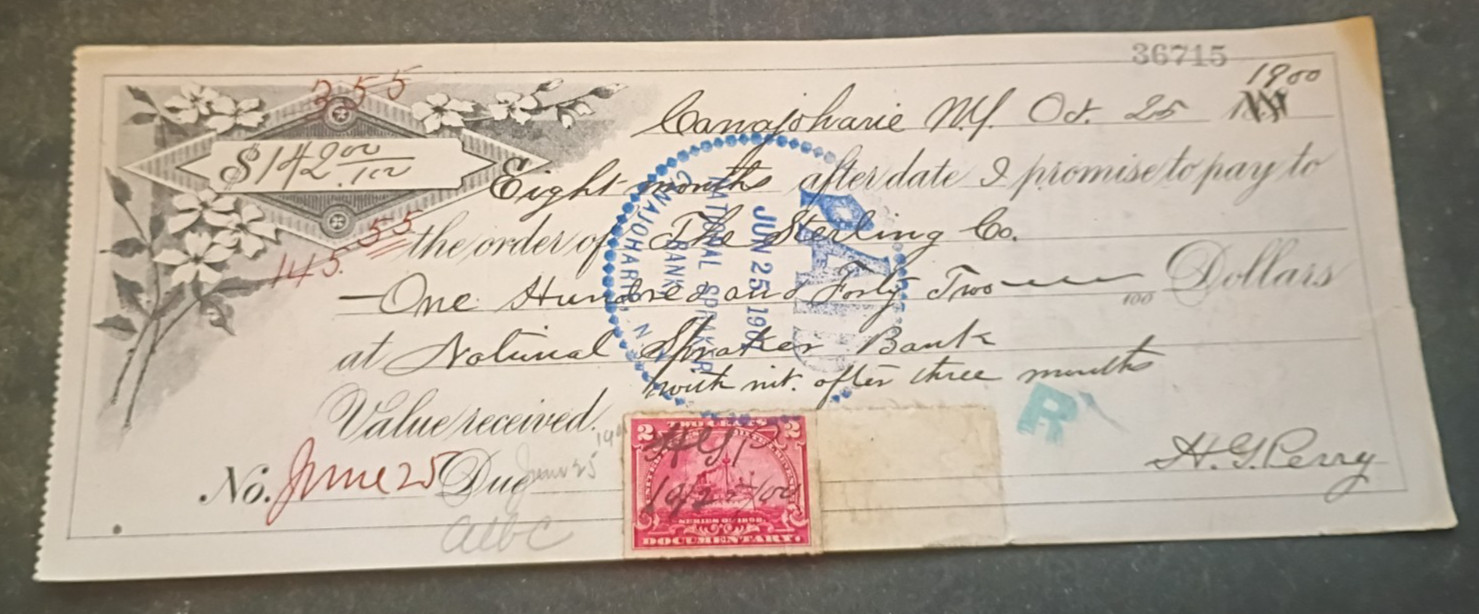 36715
1900
355
Canajoharie N.Y. Oct. 25 18
$142 00/100
Eight months after date I promise to pay to
3.55
the order of The Sterling Co.
145.55
One Hundred and Forty Two /100 Dollars
at National Spraker Bank
with int. after three months
Value received.
No. June 25 Due June 25 1901
H. G. Perry
PAID
JUN 25 1901
NATIONAL SPRAKER
BANK
CANAJOHARIE, N.Y.
R
TWO CENTS
2 2
HGP
10/25/00
SERIES OF 1898
DOCUMENTARY.